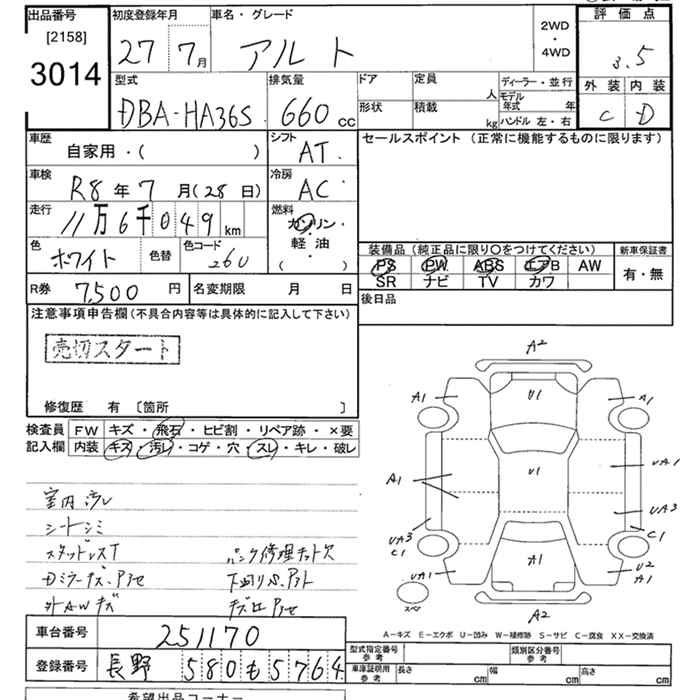 出品番号
[2158]
3014
初度登録年月
27 7月
車名・グレード
アルト
2WD
・
4WD
評価点
3.5
外装 内装
C D
型式
DBA-HA36S
排気量
660 cc
ドア
定員 人
形状
積載 kg
ディーラー・並行
モデル年式 年
ハンドル 左・右
車歴
自家用・( )
シフト
AT
セールスポイント (正常に機能するものに限ります)
車検
R8年7月(28日)
冷房
AC
走行
11万6千049km
燃料
ガソリン・
軽油・
( )
色
ホワイト
色替
色コード
26U
装備品 (純正品に限り○をつけてください)
PS PW ABS エアB AW
SR ナビ TV カワ
新車保証書
有・無
R券 7,500円
名変期限 月 日
後日品
注意事項申告欄 (不具合内容等は具体的に記入して下さい)
売切スタート
修復歴 有 〔箇所 〕
検査員記入欄
FW キズ・飛石・ヒビ割・リペア跡・×要
内装 キズ・汚レ・コゲ・穴・スレ・キレ・破レ
室内汚レ
シートシミ
スタッドレスT
Dミラーキズ、アセ
外AWキズ
パンク修理キット欠
下回りS、アト
A2
A1 U1 A1
A1 U1 UA1
UA3 C1 UA3 C1
UA1 A1 U2 A1
スペア
A2
A-キズ E-エクボ U-凹み W-補修跡 S-サビ C-腐食 XX-交換済
車台番号 251170
登録番号 長野 580 も 5764
型式指定番号 参考
類別区分番号 参考
車庫証明用 参考 長さ cm 幅 cm 高さ cm
希望出品コーナー